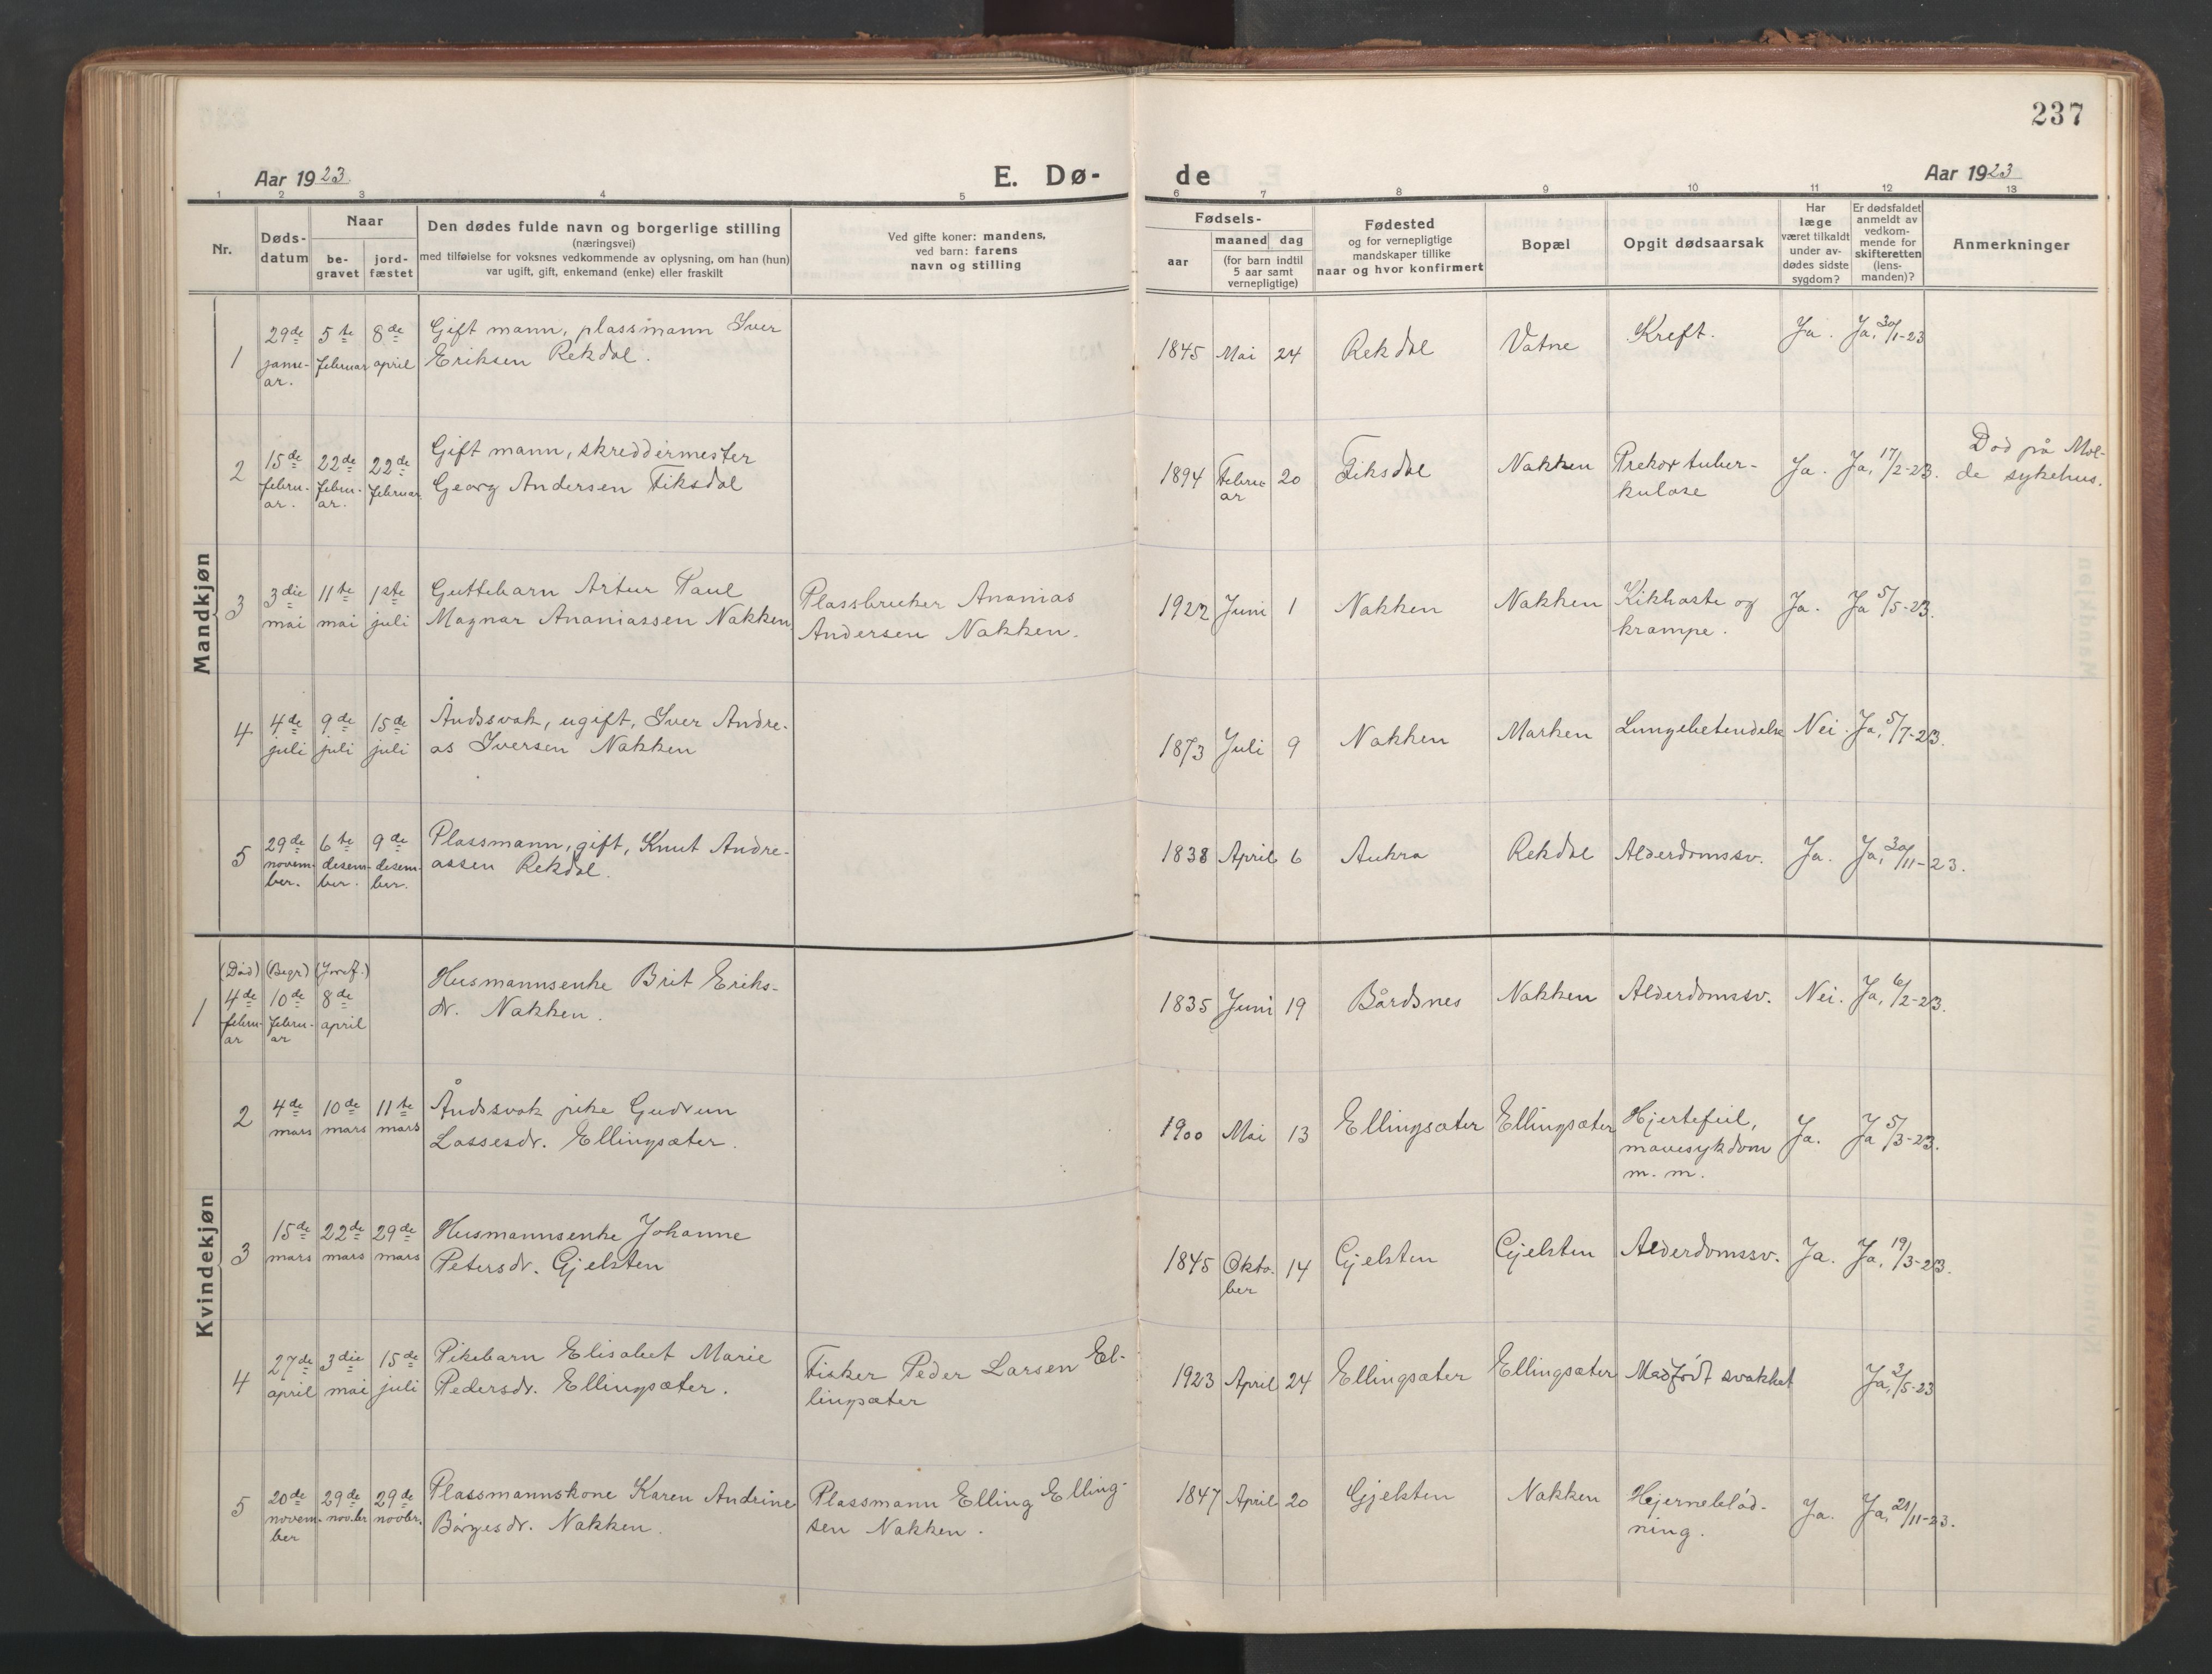 237
Aar 1923.
E. Dø-
de
Aar 1923
1 2 3 4 5 6 7 8 9 10 11 12 13
Nr.
Døds-
datum
Naar
be-
gravet
jord-
fæstet
Den dødes fulde navn og borgerlige stilling
(næringsvei)
med tilføielse for voksnes vedkommende av oplysning, om han (hun)
var ugift, gift, enkemand (enke) eller fraskilt
Ved gifte koner: mandens,
ved barn: farens
navn og stilling
Fødsels-
aar
maaned dag
(for barn indtil
5 aar samt
vernepligtige)
Fødested
og for vernepligtige
mandskaper tillike
naar og hvor konfirmert
Bopæl
Opgit dødsaarsak
Har
læge
været tilkaldt
under av-
dødes sidste
sygdom?
Er dødsfaldet
anmeldt av
vedkom-
mende for
skifteretten
(lens-
manden)?
Anmerkninger
Mandkjøn
1
29de
janu-
ar.
5te
februar
8de
april
Gift mann, plassmann Iver
Eriksen Rekdal.
1845 Mai 24
Rekdal
Vatne
Kreft.
Ja.
Ja, 30/1-23
2
15de
febru-
ar.
22de
febru-
ar.
22de
februar
Gift mann, skreddermester
Georg Andersen Fiksdal
1894 Febru-
ar
20
Fiksdal
Nakken
tuber-
kulose
Ja.
Ja, 17/2-23.
Død på Mol-
de sykehus.
3
3die
mai
11te
mai
1ste
juli
Guttebarn Artur Paul
Magnar Ananiassen Nakken
Plassbruker Ananias
Andersen Nakken.
1922 Juni 1
Nakken
Nakken
Kikhoste og
krampe.
Ja.
Ja 5/5-23.
4
4de
juli
9de
juli
15de
juli
Åndssvak, ugift, Iver Andre-
as Iversen Nakken
1873 Juli 9
Nakken
Marken
Lungebetendelse
Nei.
Ja, 5/7-23.
5
29de
novem-
ber.
6te
desem-
ber.
9de
desem-
ber.
Plassmann, gift, Knut Andre-
assen Rekdal.
1838 April 6
Aukra
Rekdal
Alderdomssv.
Ja.
Ja, 30/11-23.
Kvindekjøn
(Død) (Begr) (Jordf.)
1
4de
febru-
ar
10de
febru-
ar
8de
april
Husmannsenke Brit Eriks-
dr. Nakken.
1835 Juni 19
Bårdsnes
Nakken
Alderdomssv.
Nei.
Ja, 6/2-23.
2
4de
mars
10de
mars
11te
mars
Åndssvak pike Gudrun
Lassesdr. Ellingsæter.
1900 Mai 13
Ellingsæter
Ellingsæter
Hjertefeil,
mavesykdom
m. m.
Ja.
Ja 5/3-23.
3
15de
mars
22de
mars
29de
mars
Husmannsenke Johanne
Petersdr. Gjelsten
1845 Okto-
ber
14
Gjelsten
Gjelsten
Alderdomssv.
Ja.
Ja, 19/3-23.
4
27de
april
3die
mai
15de
juli
Pikebarn Elisabet Marie
Pedersdr. Ellingsæter.
Fisker Peder Larsen El-
lingsæter
1923 April 24
Ellingsæter
Ellingsæter
Medfødt svakhet
Ja, 3/5-23
5
20de
novem-
ber
29de
nov.ber
29de
novbr.
Plassmannskone Karen Andrine
Børgesdr. Nakken.
Plassmann Elling Elling-
sen Nakken.
1847 April 20
Gjelsten
Nakken
Hjerneblød-
ning.
Ja.
Ja, 21/11-23.